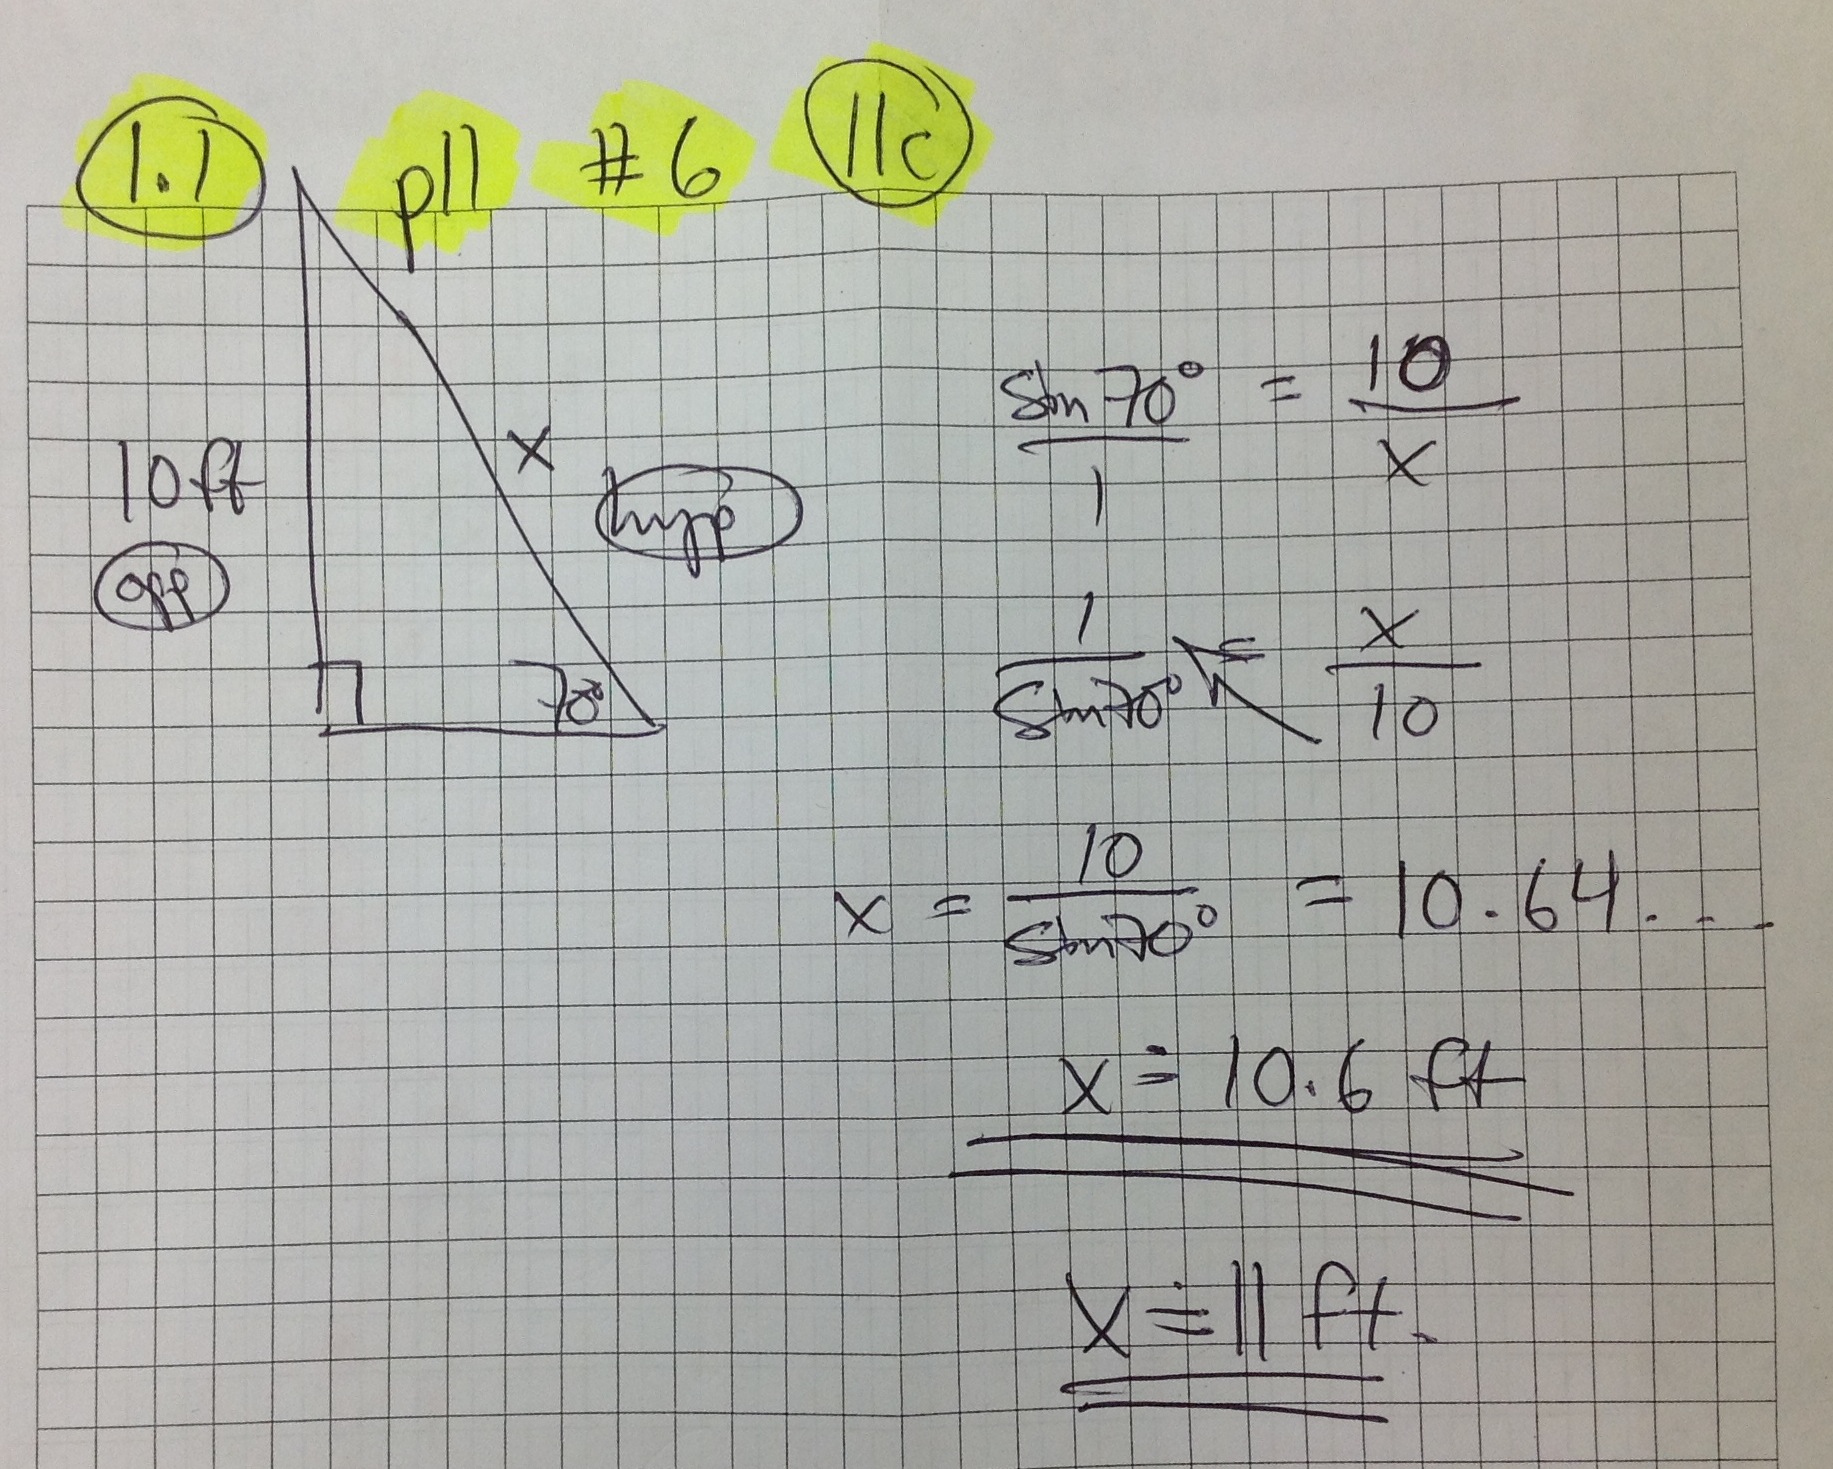 1.1 p11 #6 11c
10 ft
opp
x
hyp
70°
sin 70° / 1 = 10 / x
1 / sin 70° = x / 10
x = 10 / sin 70° = 10.64...
x ≐ 10.6 ft
x ≐ 11 ft.